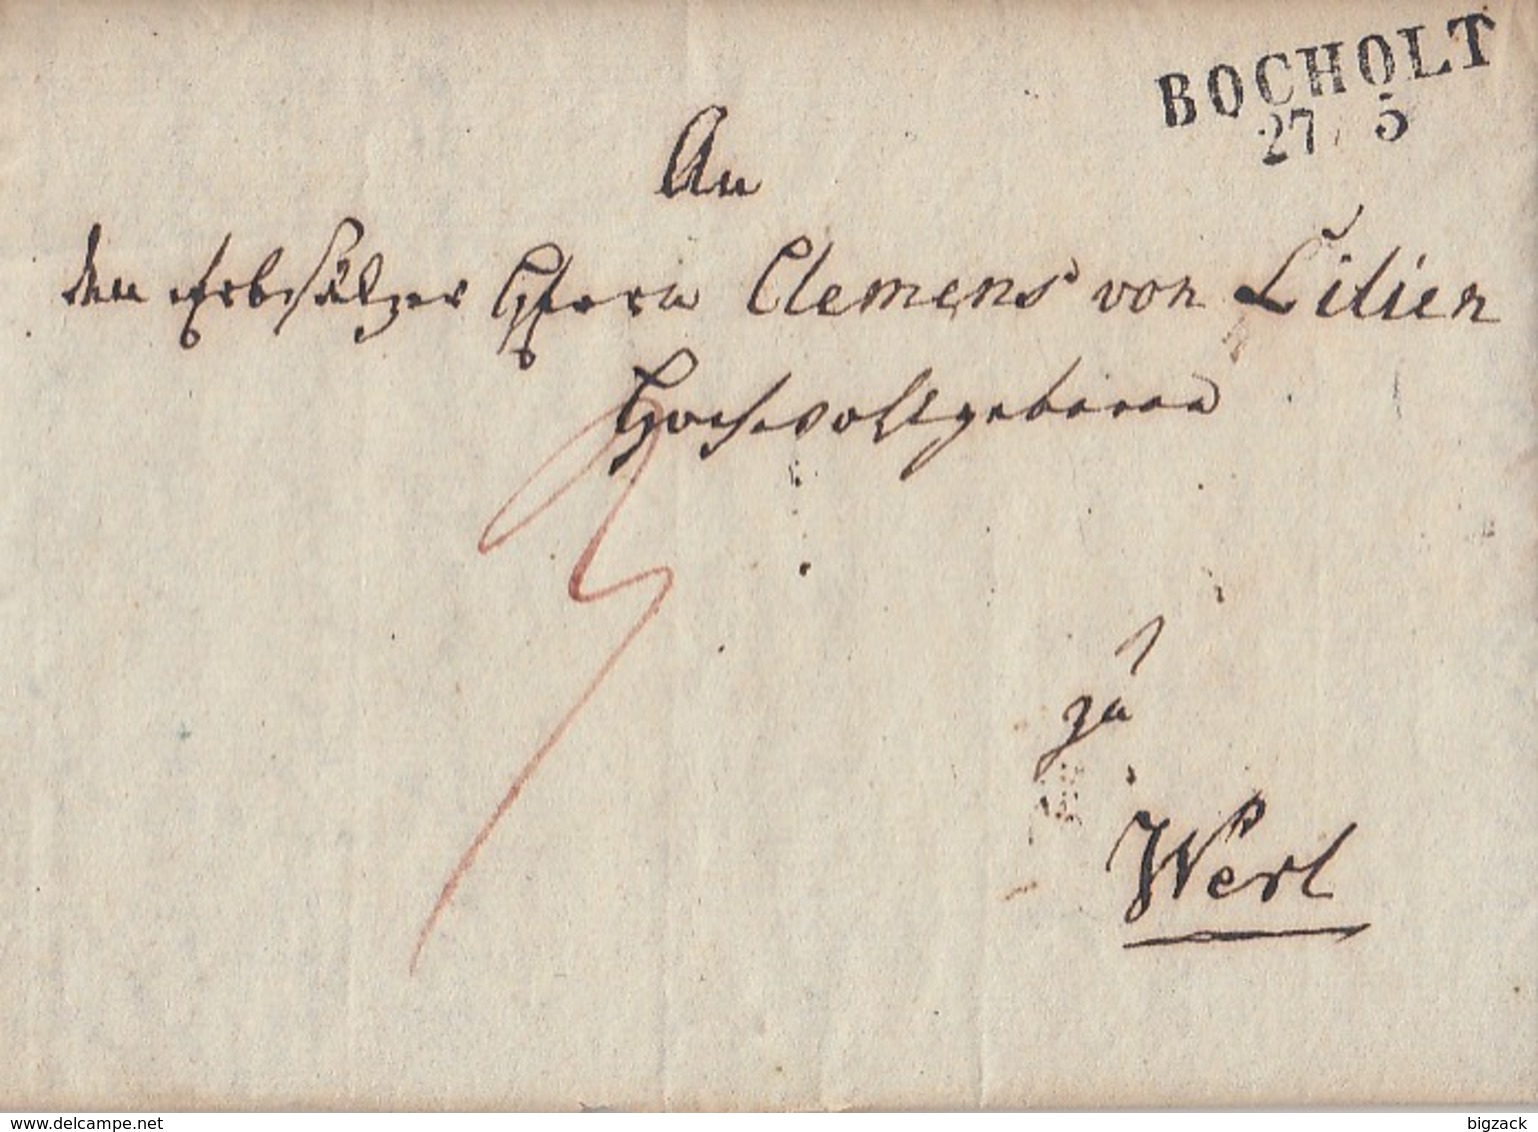 BOCHOLT
27 5
An
den Erbsälzer Herrn Clemens von Lilien
Hochwollgeboren
zu
Werl
3
delcampe.net
bigzack